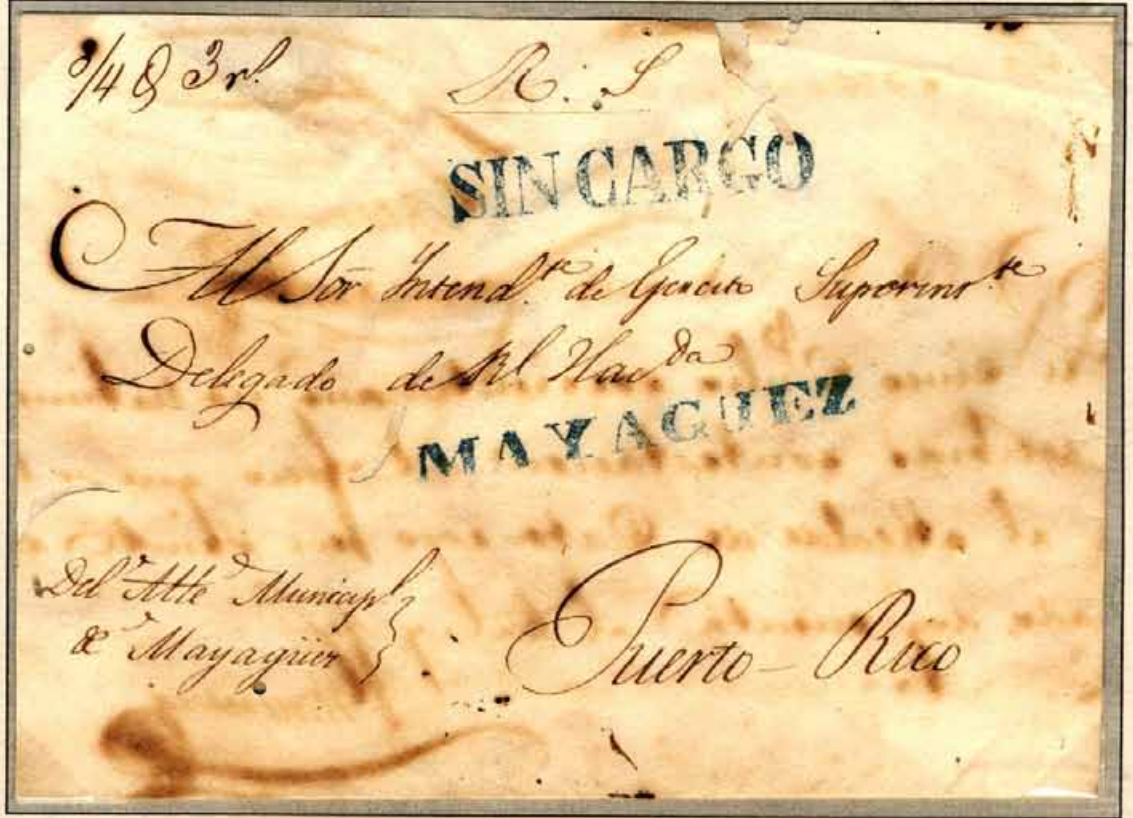 3/4 & 3 rl.
R. S
SIN CARGO
Al Sor Intendte. de Egercito Superinte.
Delegado de Rl Hacda
MAYAGUEZ
Del Alle Municipl
de Mayagüez
Puerto-Rico